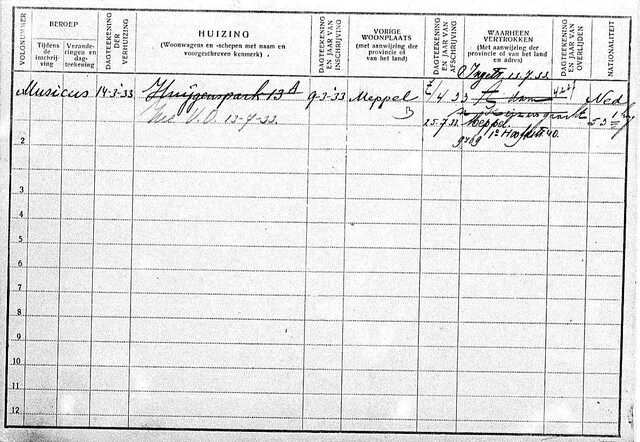 VOLGNUMMER
BEROEP
Tijdens de inschrijving
Veranderingen en dagteekening
DAGTEEKENING DER VERHUIZING
HUIZING
(Woonwagens en -schepen met naam en voorgeschreven kenmerk)
DAGTEEKENING EN JAAR VAN INSCHRIJVING
VORIGE WOONPLAATS
(met aanwijzing der provincie of van het land)
DAGTEEKENING EN JAAR VAN AFSCHRIJVING
WAARHEEN VERTROKKEN
(Met aanwijzing der provincie of van het land en adres)
DAGTEEKENING EN JAAR VAN OVERLIJDEN
NATIONALITEIT
13.7.33
Musicus 14-3-'33 Huijgenspark 13A 9-3-'33 Meppel 4 33 dam Ned
V.O. 13-7-33. 25-7-33 Meppel
1e Hoofdstr 40.
2
3
4
5
6
7
8
9
10
11
12